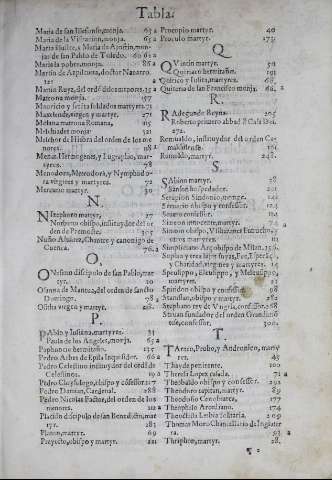 Tabla.
Maria de san Ildefonso, monja. 65 a
Maria de la Visitacion, monja. 65 a
Maria la pobre, monja. 86 a
Martin de Azpilcueta, doctor Navarro.
Matrona monja. 157
Mauricio y seis mil soldados martyres. 73
Maxelende, virgen y martyr. 271
Melana matrona Romana, 115
Melchiades monja 321
Melchor de Hisbra del orden de los me
nores. 118
Menas, Hermogenes, y Eugrapho, mar-
tyres. 78
Menodora, Metrodora, y Nymphodo
ra virgines y martyres. 72
Mercurio martyr. 30
N.
Nicephoro martyr. 17
Norberto obispo, instituydor del or
den de Premostre. 305
Nuño Alvarez, Chantre y canonigo de
Cuenca. 76 a
O.
Onesimo discipulo de san Pablo, mar
tyr. 20
Osanna de Mantua, del orden de sancto
Domingo. 78
Ositha virgen y martyr. 268
P.
Pablo, y Julitta, martyres. 31
Paula de los Angeles, monja. 65 a
Paphuncio hermitaño. 137
Pedro Arbues de Epila Inquisidor. 66 a
Pedro Celestino instituydor del orden de
Celestinos. 190
Pedro Chrysologo, obispo y cōfessor. 217
Pedro Damian, Cardenal. 288
Pedro Nicolas Factor, del orden de los
menores. 112 a
Placido discipulo de san Benedicto, mar
tyr. 283
Platon, martyr. 69
Proyecto, obispo y martyr.
Procopio martyr. 40
Proculo martyr. 273
Q
Quintin martyr. 50
Quiriaco hermitaño. 193
Quirico y Julita, martyres. 68
Quiteria de san Francisco monja. 66
R.
Radegunde Reyna. 205
Roberto primero abbad
272.
Romualdo, instituydor del orden Ca-
maldulense. 101
Romualdo, martyr. 248
S.
Sabino martyr. 28
Sanson hospedador. 201
Serapion Sindonio, monge. 142
Severino obispo y confessor. 123
Severo confessor. 111
Simeon innocente, martyr. 74
Simon obispo,
otros martyres. 111
Simpliciano Arçobispo de Milan.
Sophia y tres hijas suyas, Fee, Esperāça,
y Charidad, virgines y martyres. 15
Speusippo, Eleusippo, y Meleusippo,
martyres. 22
Spiridon obispo y confessor 98
Stanislao, obispo y martyr. 282
Stephano rey de Ungria, confessor. 268
Stevan fundador del orden Grandimō
tese, confessor. 300
T.
Taraco, Probo, y Andronico, martyres. 43
Thays penitente. 100
Teresa Lopez casada. 71 a
Theobaldo obispo y confessor. 292
Theodulo capitan, martyr. 100
Theodosio Cenobiarca, 177
Theophilo Arcediano. 174
Theoctista Lesbia solitaria. 209
Thomas Moro Chanciller de Inglater
ra. 93 a
Thriphon, martyr. 28